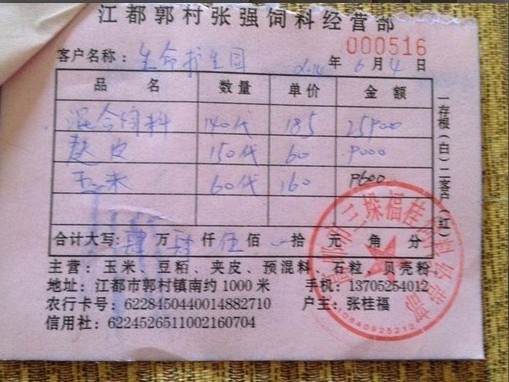 江都郭村张强饲料经营部
000516
客户名称：生命护生园 2014年6月4日
品名 数量 单价 金额
混合饲料 140代 185 25900
麸皮 150代 60 9000
玉米 60代 160 9600
合计大写：肆万 仟伍佰 拾 元 角 分
一存根（白）二客户（红）
主营：玉米、豆粕、夹皮、预混料、石粒、贝壳粉
地址：江都市郭村镇南约1000米 手机：13705254012
农行卡号：6228450440014882710 户主：张桂福
信用社：6224526511002160704